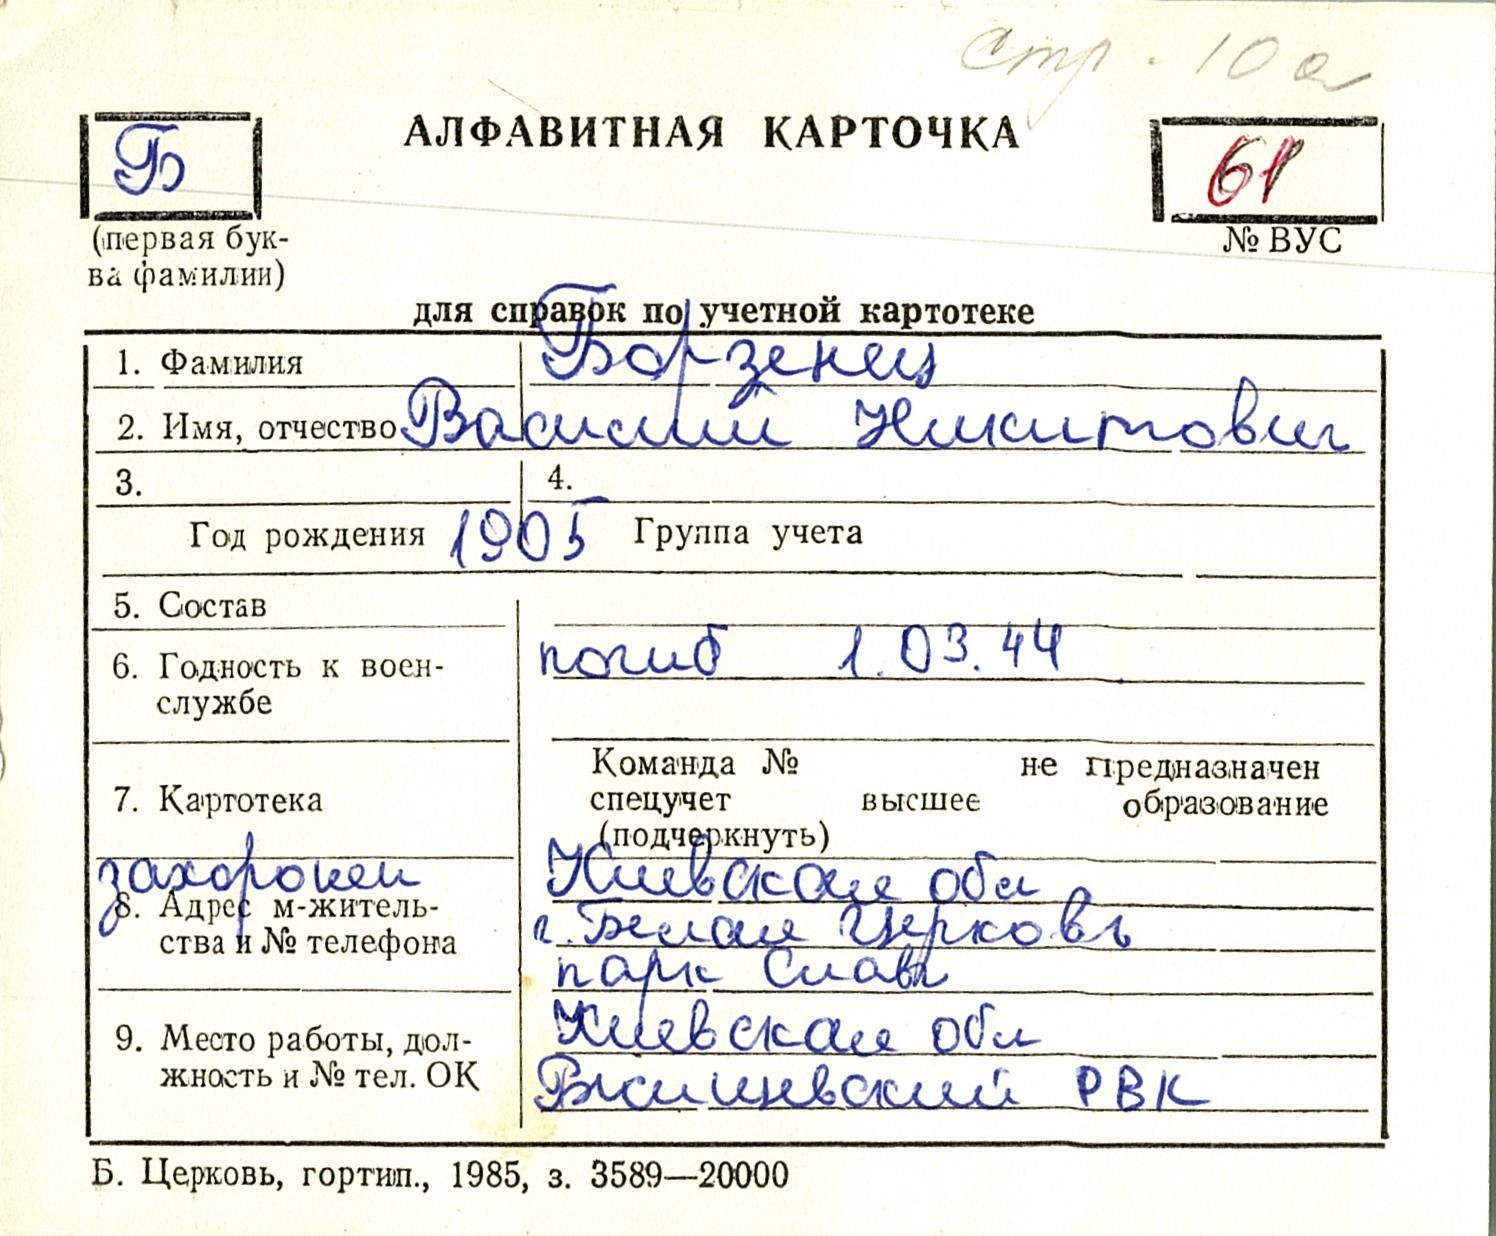 стр. 10 а
Б
АЛФАВИТНАЯ КАРТОЧКА
61
(первая бук-
ва фамилии)
№ ВУС
для справок по учетной картотеке
1. Фамилия Борзенец
2. Имя, отчество Василий Никитович
3. 4.
Год рождения 1905 Группа учета
5. Состав
погиб 1.03.44
6. Годность к воен-
службе
Команда № не предназначен
7. Картотека спецучет высшее образование
(подчеркнуть)
захоронен Киевская обл
8. Адрес м-житель- г. Белая Церковь
ства и № телефона
парк Славы
9. Место работы, дол- Киевская обл
жность и № тел. ОК РВК
Б. Церковь, гортип., 1985, з. 3589—20000